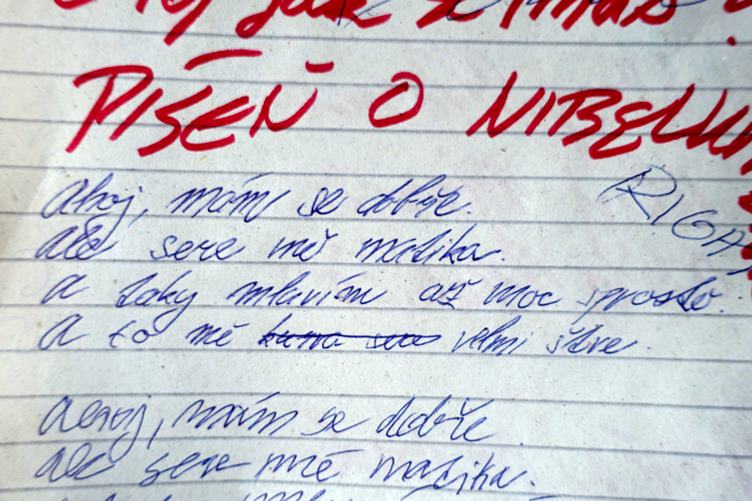 PÍSEŇ O NIBELUN
RIGH
ahoj, mám se dobře.
ale sere mě matika.
a taky mluvím až moc sprostě.
a to mě velmi štve.
ahoj, mám se dobře.
ale sere mě matika.